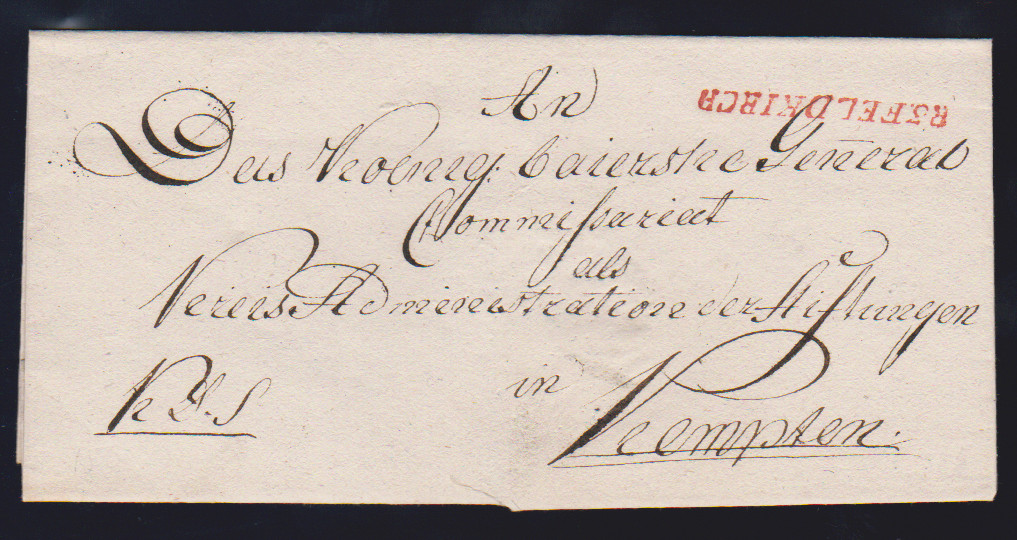 An
R3.FELDKIRCH
Das Koenig: baiershe General
Commissariat
als
Kreis Administration der Stiftungen
K D. S
in
Kempten.